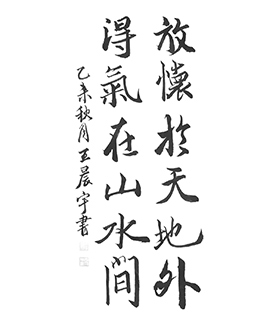 放懷於天地外
得氣在山水間
乙未秋月王晨宇書